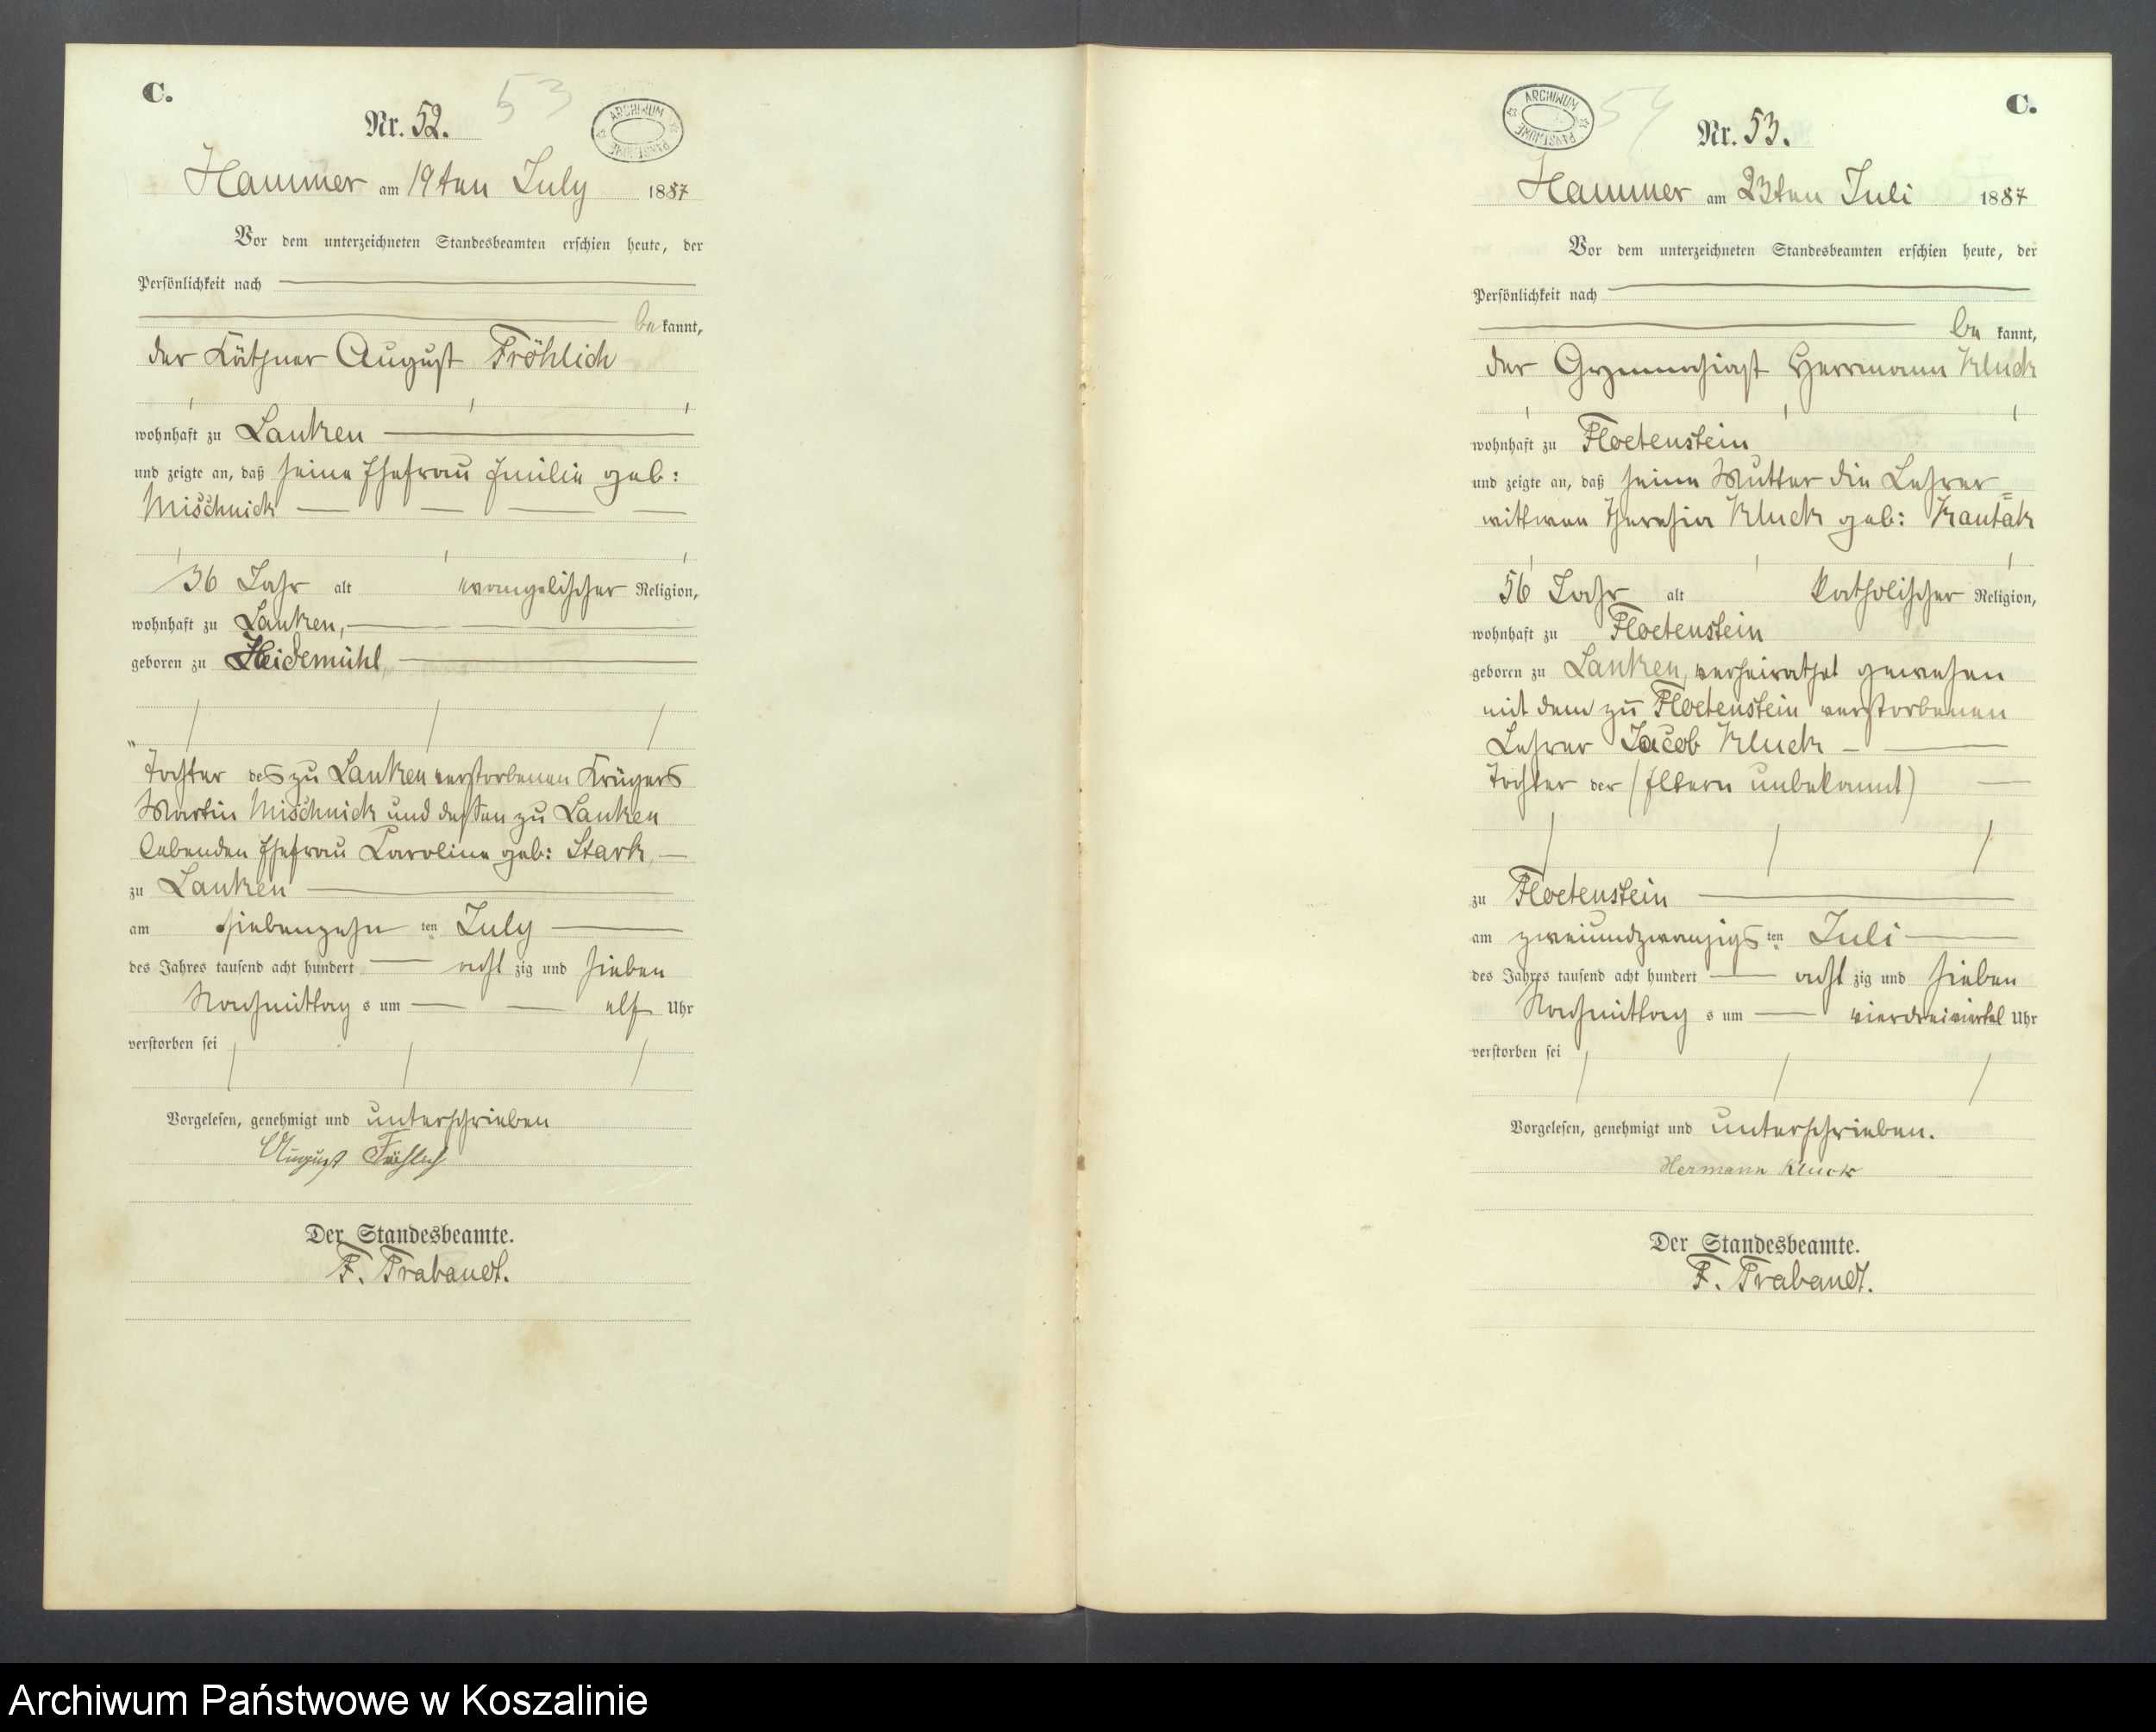 C.
53
Nr. 52.
ARCHIWUM PAŃSTWOWE
Hammer am 19ten July 1887
Vor dem unterzeichneten Standesbeamten erschien heute, der
Persönlichkeit nach
be kannt,
der Käthner August Fröhlich
wohnhaft zu Lanken
und zeigte an, daß seine Ehefrau Emilie geb:
Mischnick
36 Jahr alt evangelischer Religion,
wohnhaft zu Lanken,
geboren zu Heidemühl,
Tochter des zu Lanken verstorbenen Krügers
Martin Mischnick und dessen zu Lanken
lebenden Ehefrau Caroline geb: Stark,
zu Lanken
am siebenzehn ten July
des Jahres tausend acht hundert acht zig und sieben
Nachmittag s um elf Uhr
verstorben sei
Vorgelesen, genehmigt und unterschrieben
August Fröhlich
Der Standesbeamte.
F. Trabandt.
ARCHIWUM PAŃSTWOWE
54
C.
Nr. 53.
Hammer am 23ten Juli 1887
Vor dem unterzeichneten Standesbeamten erschien heute, der
Persönlichkeit nach
be kannt,
der Gymnasiast Herrmann Kluck
wohnhaft zu Floetenstein
und zeigte an, daß seine Mutter die Lehrer=
wittwe Theresia Kluck geb: Kantak
56 Jahr alt katholischer Religion,
wohnhaft zu Floetenstein
geboren zu Lanken, verheirathet gewesen
mit dem zu Floetenstein verstorbenen
Lehrer Jacob Kluck
Tochter der (Eltern unbekannt)
zu Floetenstein
am zweiundzwanzigs ten Juli
des Jahres tausend acht hundert acht zig und sieben
Nachmittag s um vierdreiviertel Uhr
verstorben sei
Vorgelesen, genehmigt und unterschrieben.
Hermann Kluck
Der Standesbeamte.
F. Trabandt.
Archiwum Państwowe w Koszalinie